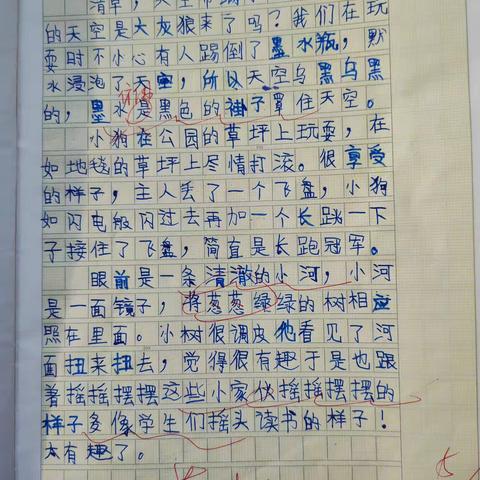 清早，天空
的天空是大灰狼来了吗？我们在玩
耍时不小心有人踢倒了墨水瓶，默
水浸泡了天空，所以天空乌黑乌黑
的，墨水是黑色的褂子罩住天空。
小狗在公园的草坪上玩耍，在
如地毯的草坪上尽情打滚。很享受
的样子，主人丢了一个飞盘，小狗
如闪电般闪过去再加一个长跳一下
子接住了飞盘，简直是长跑冠军。
眼前是一条清澈的小河，小河
是一面镜子，将葱葱绿绿的树相应
照在里面。小树很调皮他看见了河
面扭来扭去，觉得很有趣于是也跟
着摇摇摆摆这些小家伙摇摇摆摆的
样子多像学生们摇头读书的样子！
太有趣了。